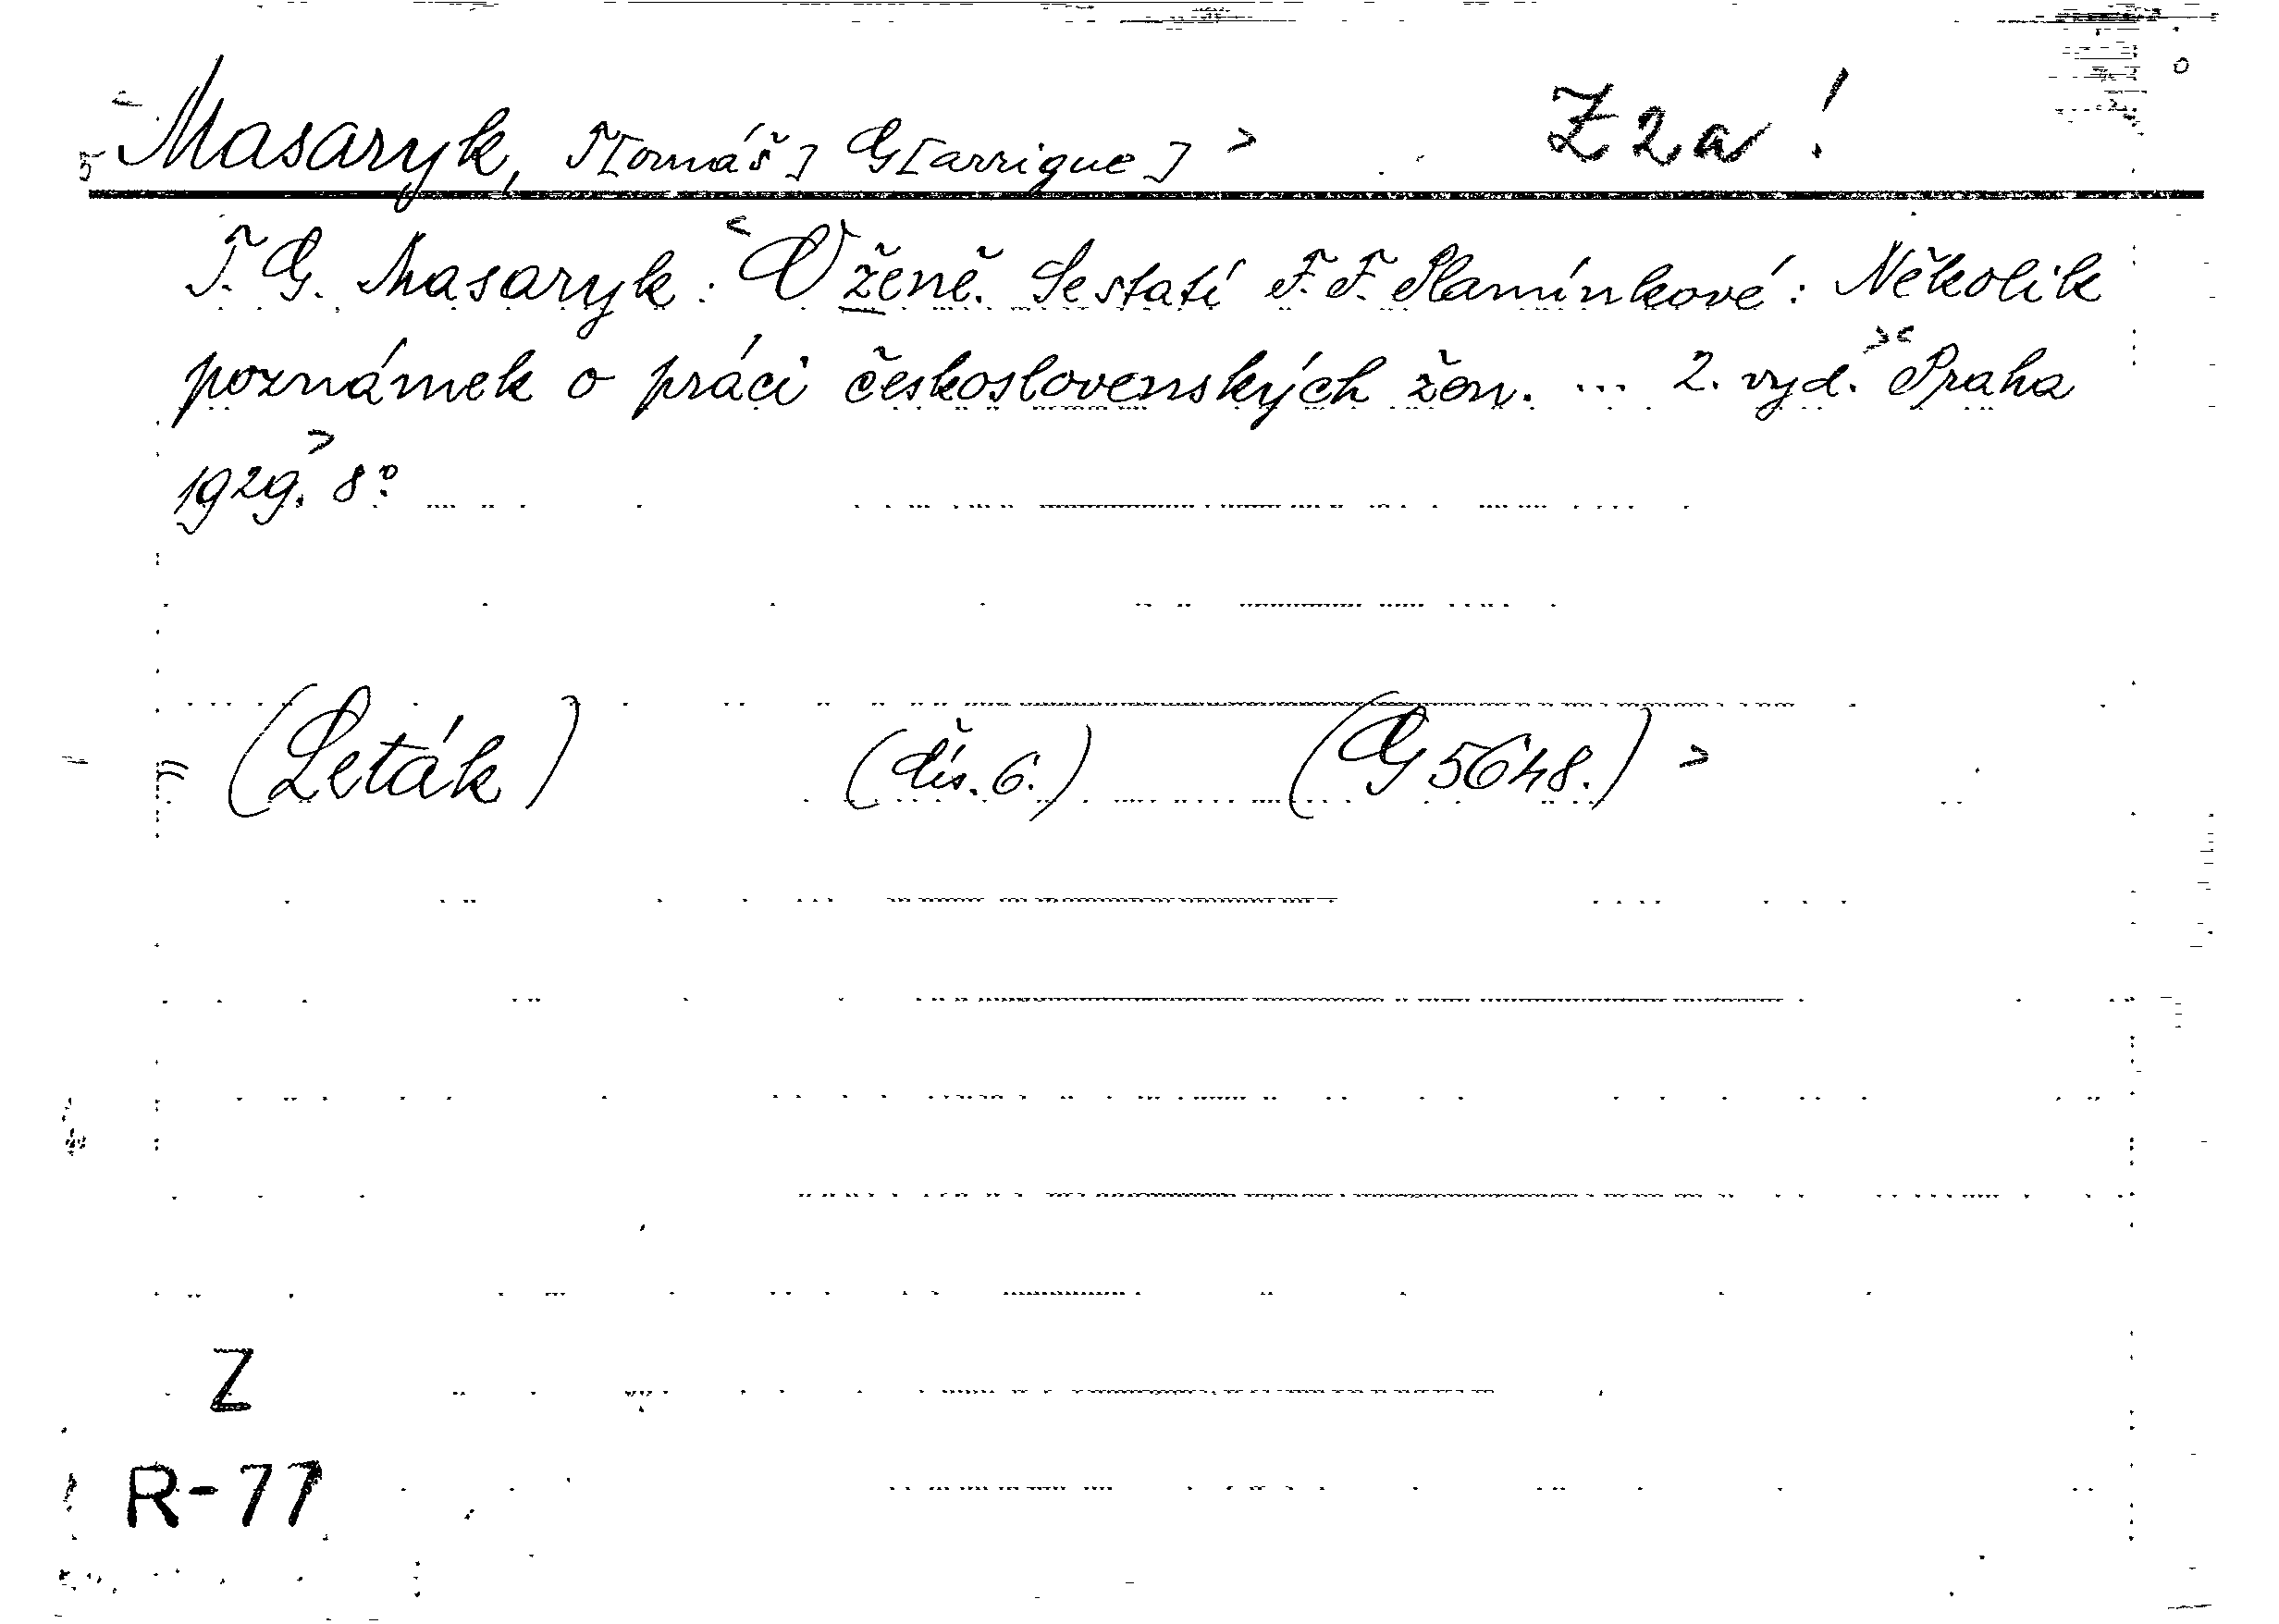 Masaryk, T[omáš] G[arrigue] > Z 2 a !
T. G. Masaryk: O ženě. Se statí F. F. Plamínkové: Několik
poznámek o práci československých žen. ... 2. vyd. Praha
1929. 8°.
(Leták) (čís. 6.) (G 5648.) >
Z
R-77